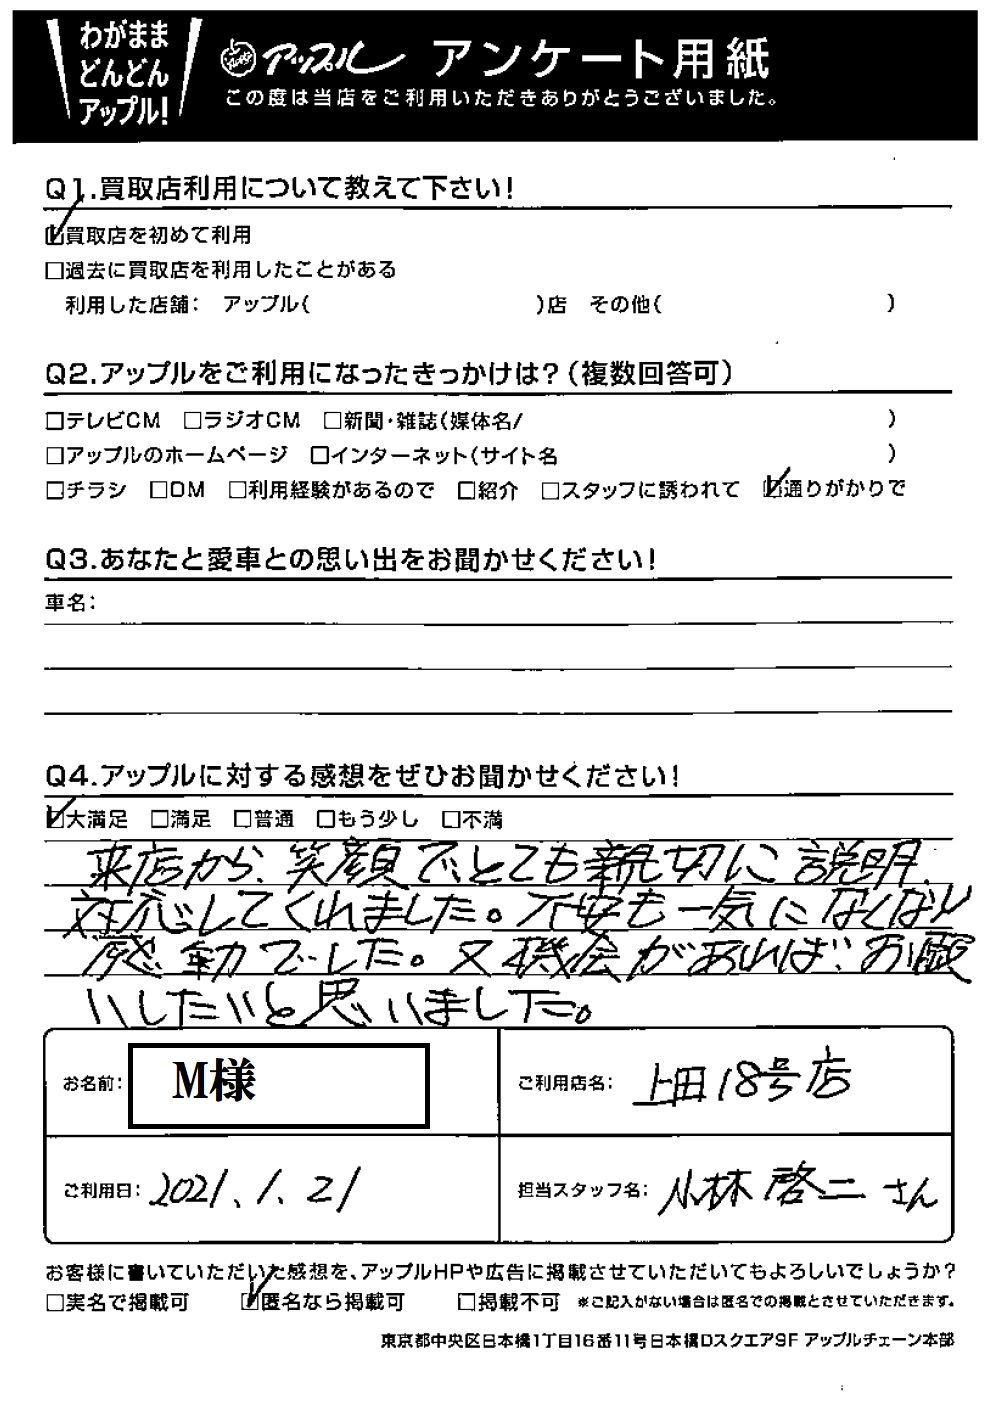 わがまま
どんどん
アップル!
アップル アンケート用紙
この度は当店をご利用いただきありがとうございました。
Q1.買取店利用について教えて下さい!
☑買取店を初めて利用
□過去に買取店を利用したことがある
利用した店舗: アップル( )店 その他( )
Q2.アップルをご利用になったきっかけは?(複数回答可)
□テレビCM □ラジオCM □新聞・雑誌(媒体名/ )
□アップルのホームページ □インターネット(サイト名 )
□チラシ □DM □利用経験があるので □紹介 □スタッフに誘われて ☑通りがかりで
Q3.あなたと愛車との思い出をお聞かせください!
車名:
Q4.アップルに対する感想をぜひお聞かせください!
☑大満足 □満足 □普通 □もう少し □不満
来店から、笑顔で、とても親切に説明、
対応してくれました。不安も一気になくなり
感動でした。又機会があればお願
いしたいと思いました。
お名前: M様
ご利用店名: 上田18号店
ご利用日: 2021.1.21
担当スタッフ名: 小林啓二さん
お客様に書いていただいた感想を、アップルHPや広告に掲載させていただいてもよろしいでしょうか?
□実名で掲載可 ☑匿名なら掲載可 □掲載不可 ※ご記入がない場合は匿名での掲載とさせていただきます。
東京都中央区日本橋1丁目16番11号日本橋Dスクエア9F アップルチェーン本部